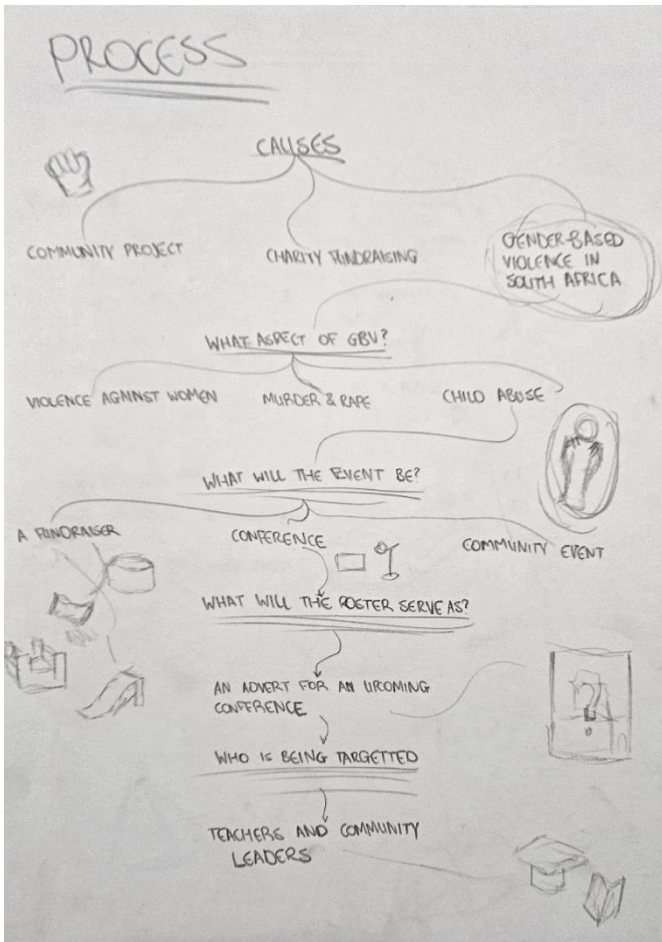 PROCESS
CAUSES
COMMUNITY PROJECT
CHARITY FUNDRAISING
GENDER-BASED
VIOLENCE IN
SOUTH AFRICA
WHAT ASPECT OF GBV?
VIOLENCE AGAINST WOMEN
MURDER & RAPE
CHILD ABUSE
WHAT WILL THE EVENT BE?
A FUNDRAISER
CONFERENCE
COMMUNITY EVENT
WHAT WILL THE POSTER SERVE AS?
AN ADVERT FOR AN UPCOMING
CONFERENCE
?
WHO IS BEING TARGETTED
TEACHERS AND COMMUNITY
LEADERS